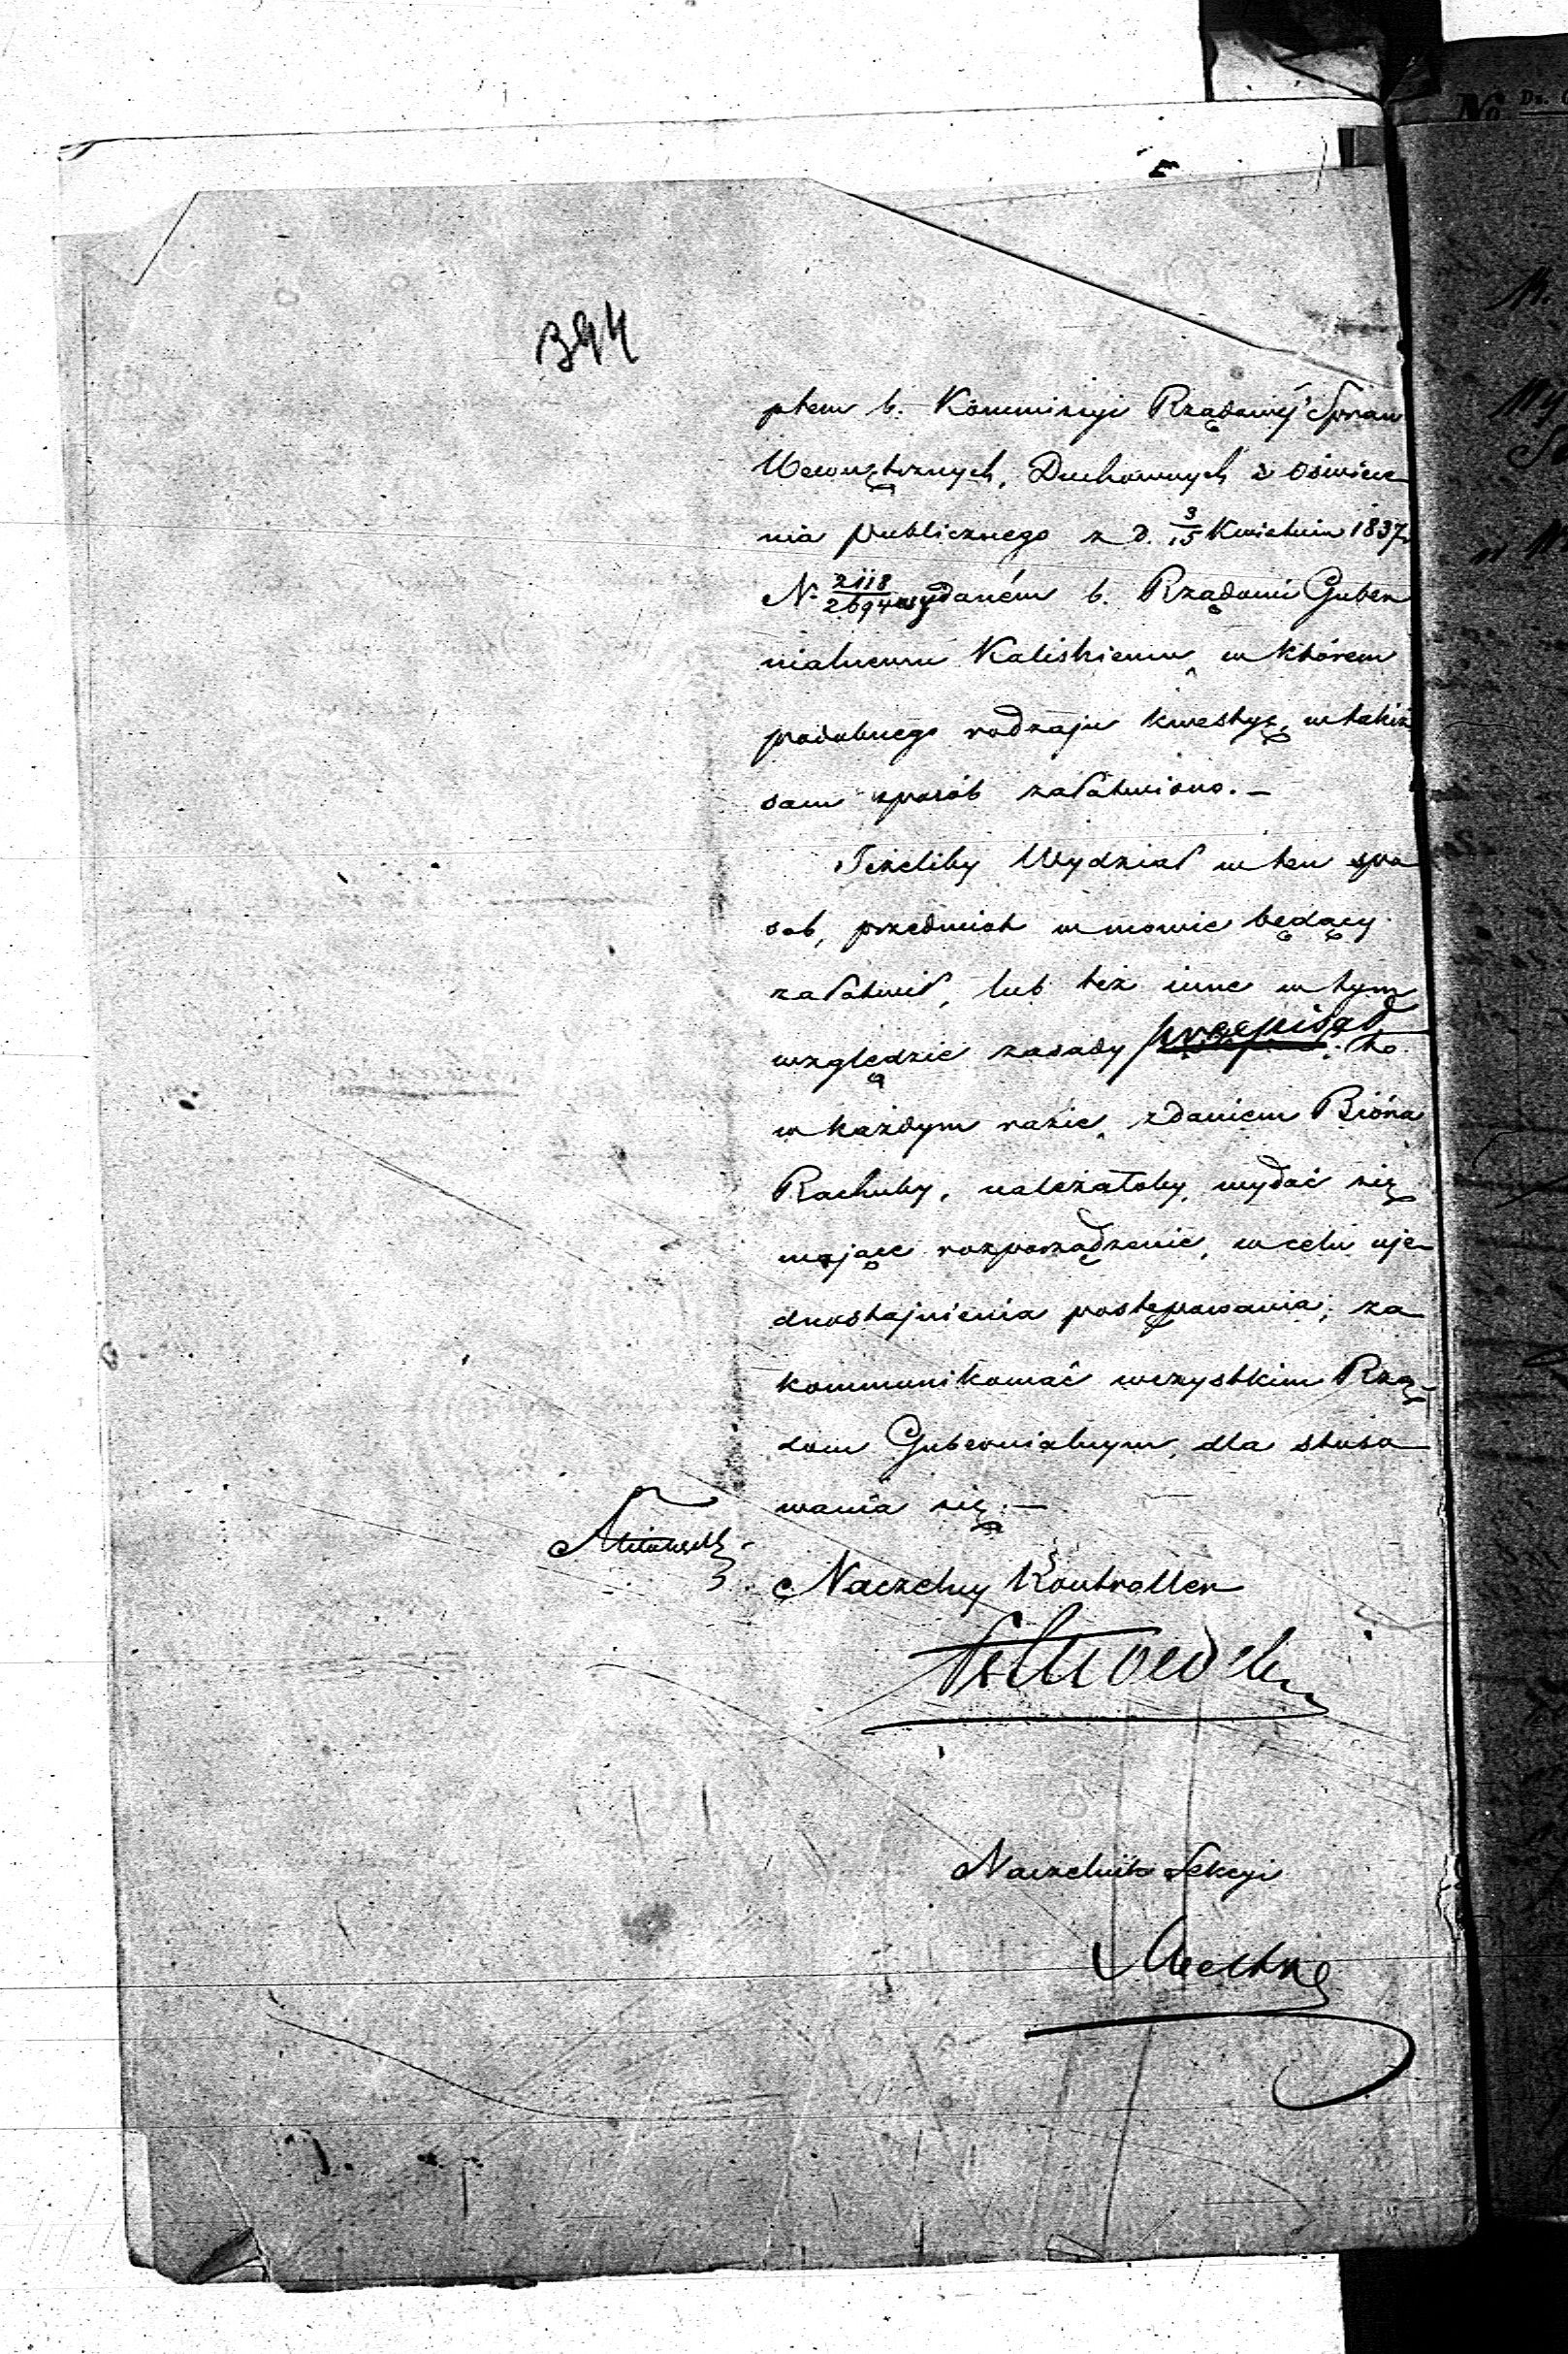 394
ptem b. Kommissyi Rządowej Spraw
Wewnętrznych, Duchownych i Oświece
nia publicznego z d. 3/15 Kwietnia 1837 r.
N. 2118/2694 wydaném b. Rządowi Guber
nialnemu Kaliskiemu, w którem
podobnego rodzaju kwestyę, w takiż
sam sposób załatwiono. —
Jeżeliby Wydział w ten spo
sób, przedmiot w mowie będący
załatwił, lub też inne w tym
względzie zasady przepisał to
w każdym razie, zdaniem Bióra
Rachuby, należałoby, wydać się
mające rozporządzenie, w celu uje-
dnostajnienia postępowania, za
kommunikować wszystkim Rzą-
dom Gubernialnym, dla stoso-
wania się. —
Naczelny Kontroller
Naczelnik Sekcyi